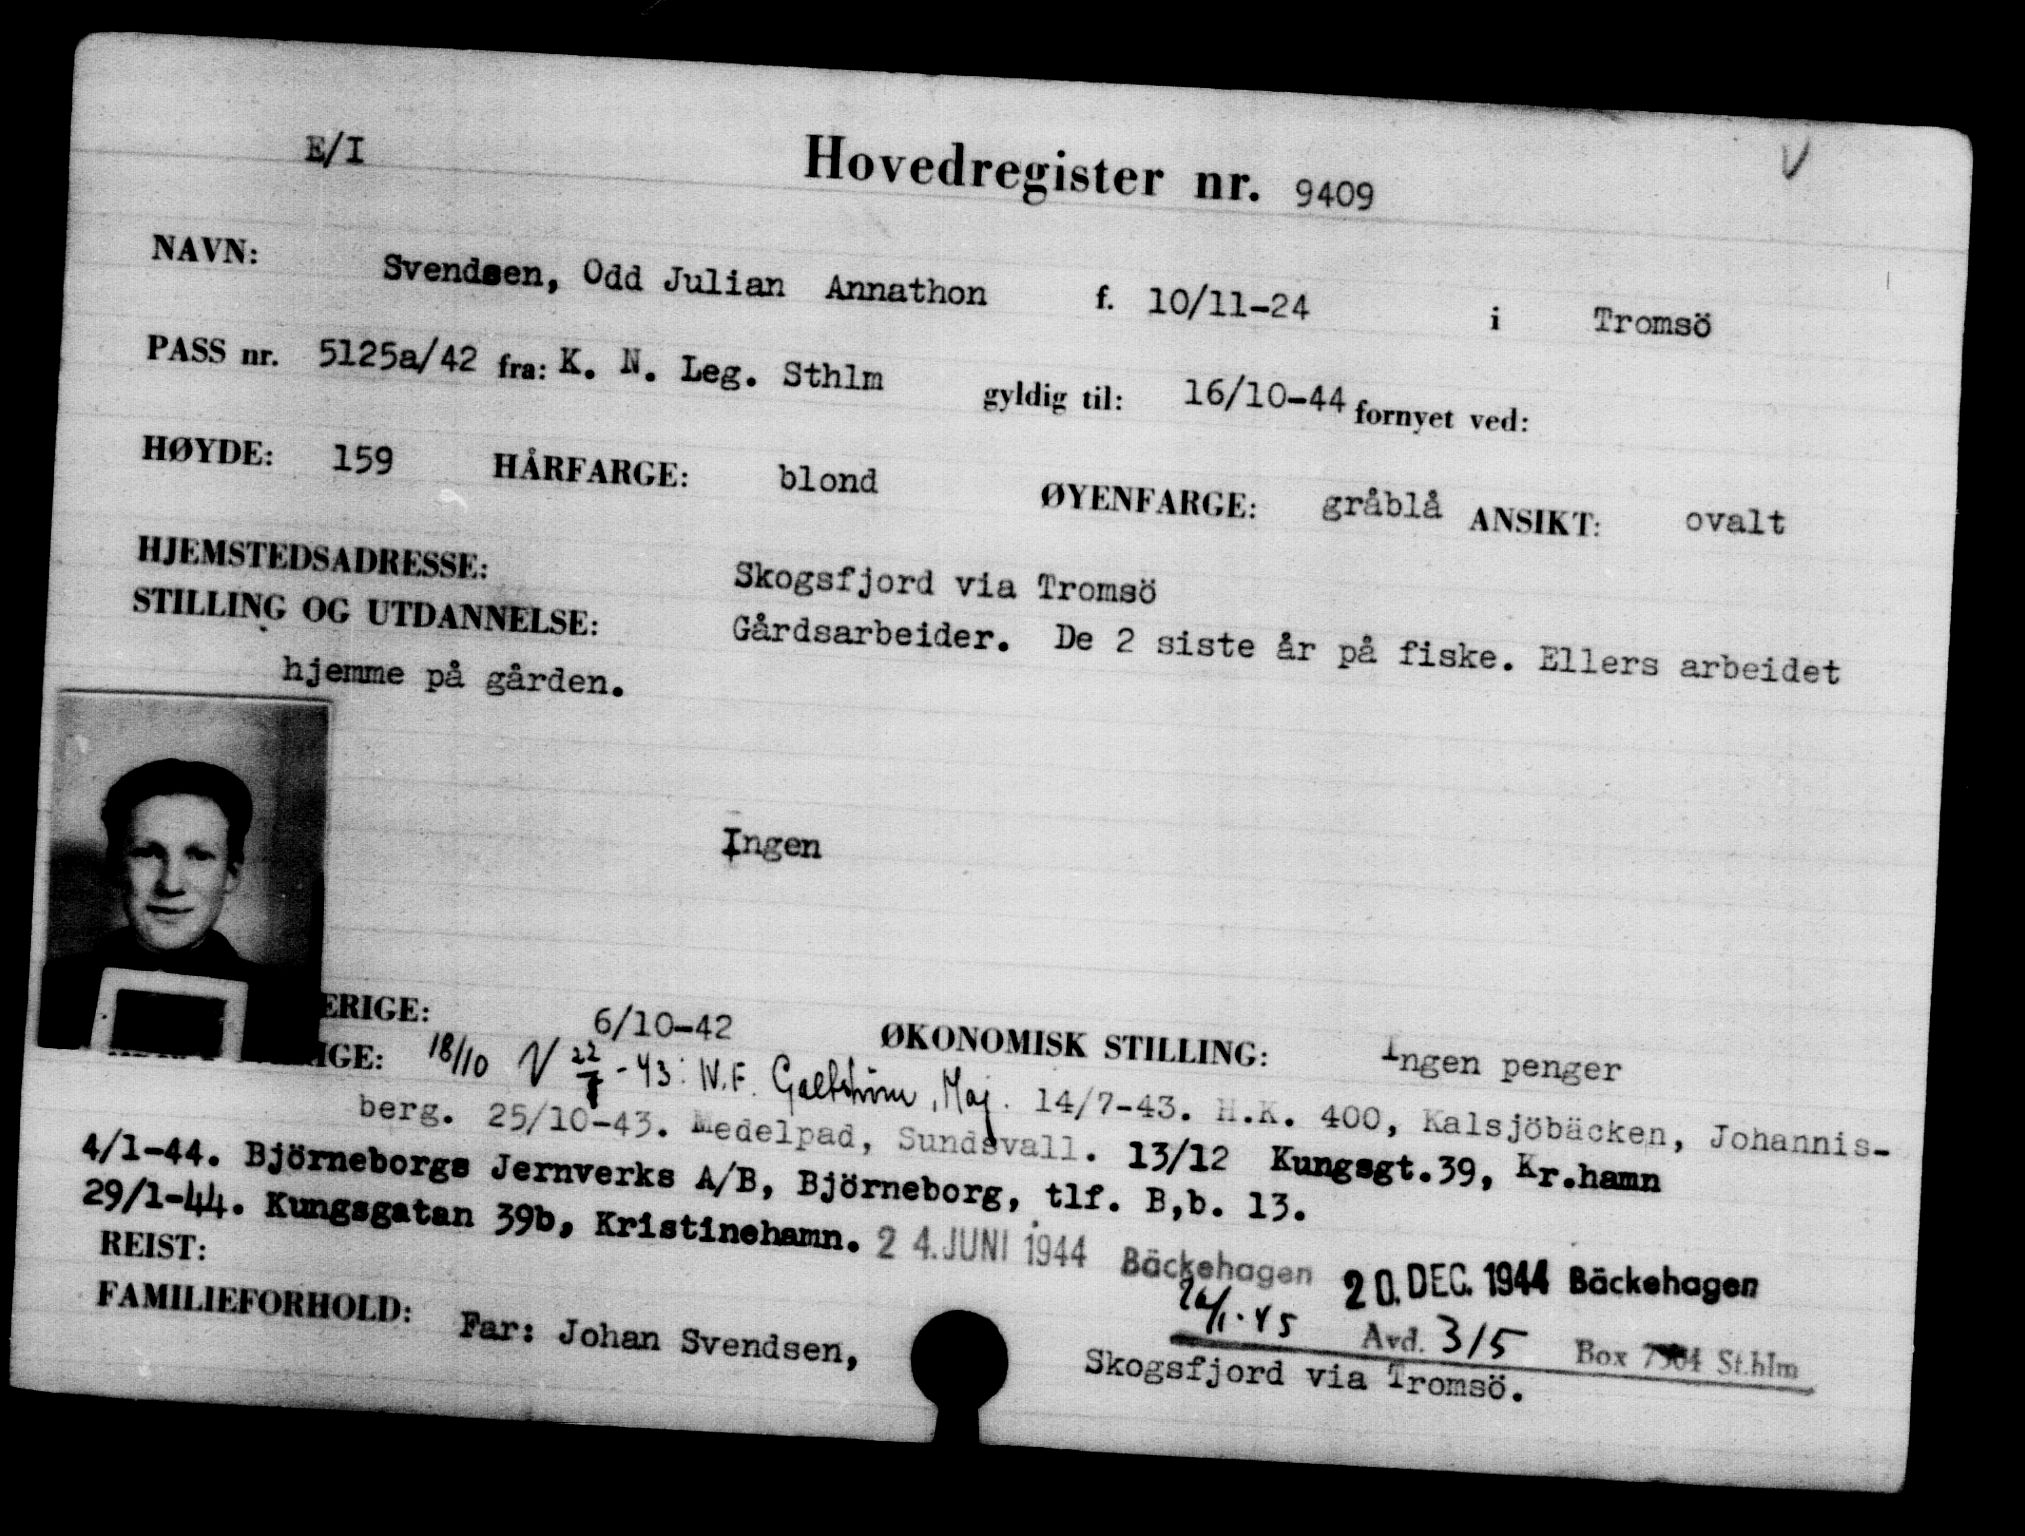 E/I Hovedregister nr. 9409 V
NAVN: Svendsen, Odd Julian Annathon f. 10/11-24 i Tromsö
PASS nr. 5125a/42 fra: K. N. Leg. Sthlm gyldig til: 16/10-44 fornyet ved:
HØYDE: 159 HÅRFARGE: blond ØYENFARGE: gråblå ANSIKT: ovalt
HJEMSTEDSADRESSE: Skogsfjord via Tromsö
STILLING OG UTDANNELSE: Gårdsarbeider. De 2 siste år på fiske. Ellers arbeidet
hjemme på gården.
Ingen
ERIGE: 6/10-42 ØKONOMISK STILLING: Ingen penger
IGE: 18/10 V 22/7-43: 14/7-43. H.K. 400, Kalsjöbäcken, Johannis-
berg. 25/10-43. Medelpad, Sundsvall. 13/12 Kungsgt.39, Kr.hamn
4/1-44. Björneborgs Jernverks A/B, Björneborg, tlf. B,b. 13.
29/1-44. Kungsgatan 39b, Kristinehamn. 24.JUNI 1944 Bäckehagen 20.DEC.1944 Bäckehagen
REIST: Avd. 3/5 Box 7304 St.hlm
FAMILIEFORHOLD: Far: Johan Svendsen, Skogsfjord via Tromsö.